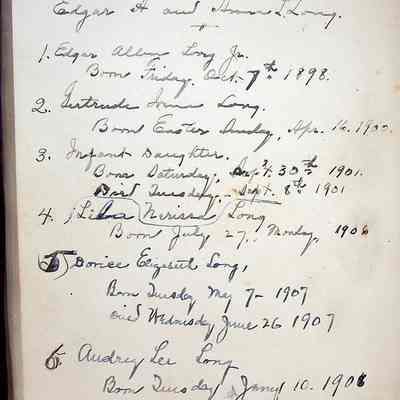 Edgar H and Anna L. Long.
1. Edgar Allen Long Jr.
Born Friday, Oct. 7th 1898.
2. Gertrude Irma Long.
Born Easter Sunday, Apr. 16, 1900.
3. Infant daughter.
Born Saturday, 30th 1901.
Died Tuesday, Sept. 8th 1901
4. Lila Nerissa Long
Born July 27, Monday, 1906
5 Elizabeth Long,
Born Tuesday May 7- 1907
died Wednesday June 26 1907
6. Audrey Lee Long
Born Tuesday Jany 10. 1908